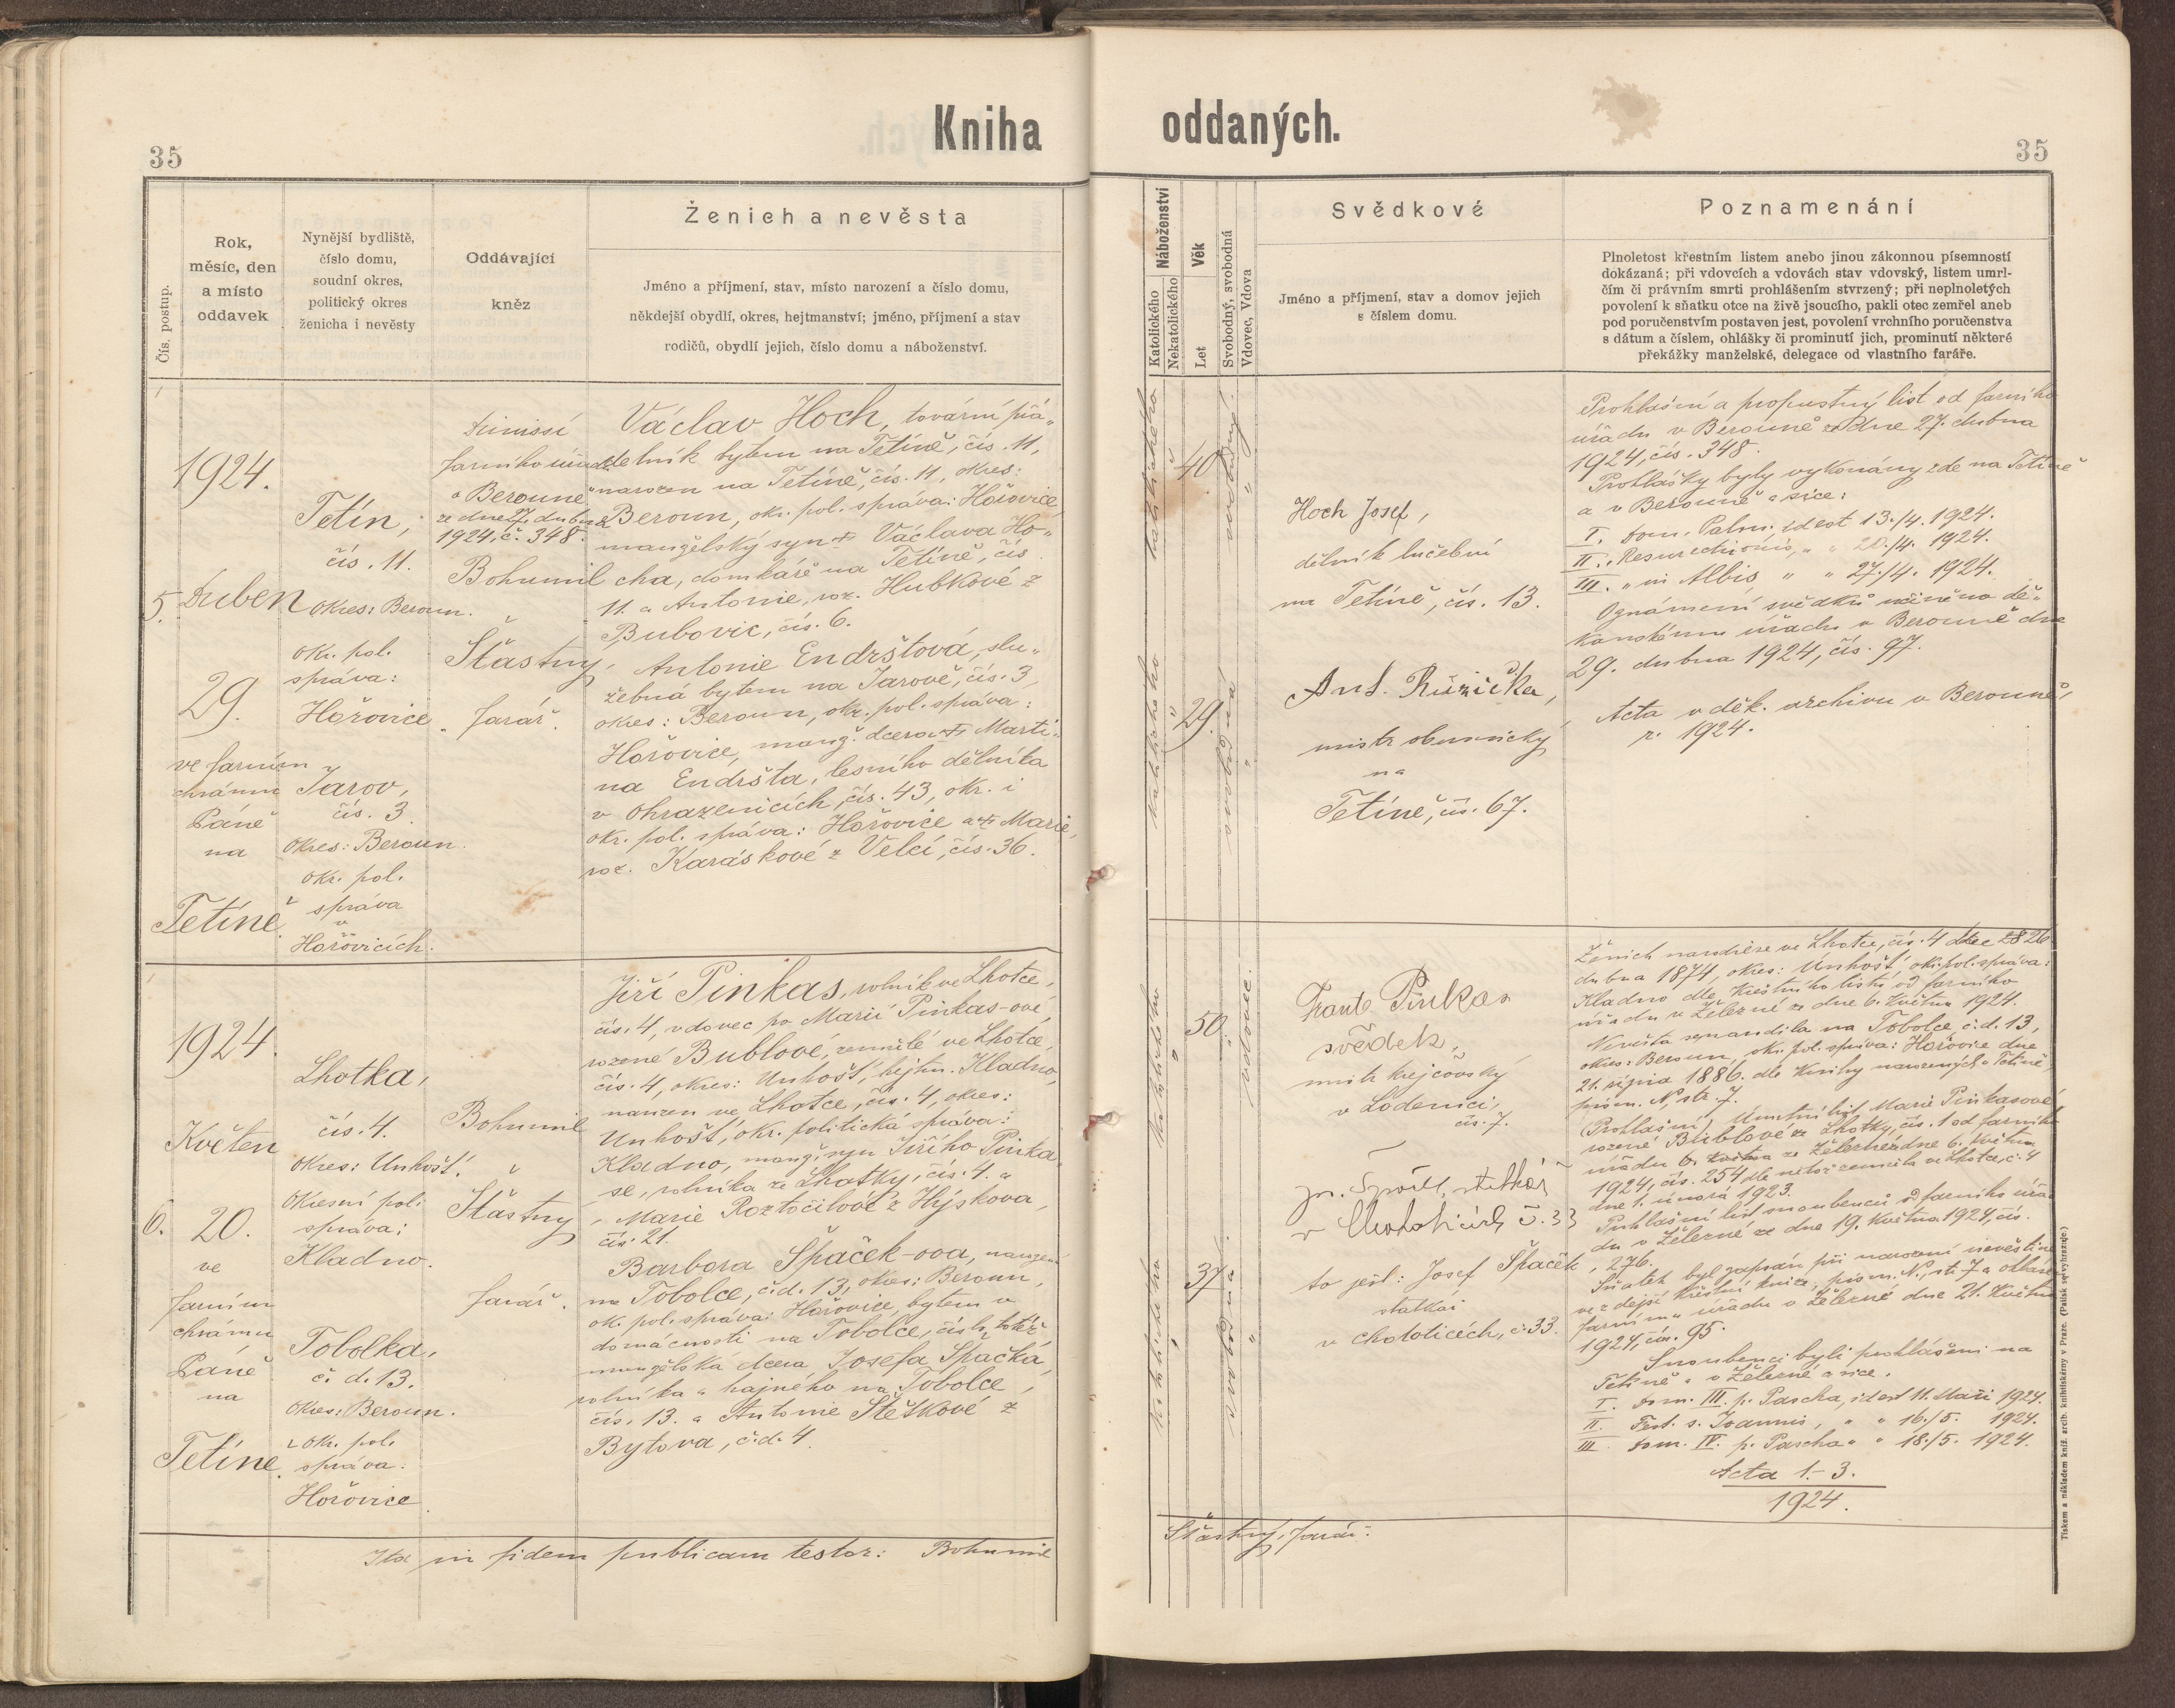 Kniha oddaných.
35
35
Čís. postup.
Rok,
měsíc, den
a místo
oddavek
Nynější bydliště,
číslo domu,
soudní okres,
politický okres
ženicha i nevěsty
Oddávající
kněz
Ženich a nevěsta
Jméno a příjmení, stav, místo narození a číslo domu,
někdejší obydlí, okres, hejtmanství; jméno, příjmení a stav
rodičů, obydlí jejich, číslo domu a náboženství.
Náboženství
Katolického
Nekatolického
Věk
Let
Svobodný, svobodná
Vdovec, Vdova
Svědkové
Jméno a příjmení, stav a domov jejich
s číslem domu.
Poznamenání
Plnoletost křestním listem anebo jinou zákonnou písemností
dokázaná; při vdovcích a vdovách stav vdovský, listem umrl-
čím či právním smrti prohlášením stvrzený; při neplnoletých
povolení k sňatku otce na živě jsoucího, pakli otec zemřel aneb
pod poručenstvím postaven jest, povolení vrchního poručenstva
s dátum a číslem, ohlášky či prominutí jich, prominutí některé
překážky manželské, delegace od vlastního faráře.
5.
1924.
Duben
29.
ve farním
chrámu
Páně
na
Tetíně.
Tetín,
čís. 11.
Okres: Beroun.
Okr. pol.
správa:
Hořovice.
Jarov,
čís. 3.
Okres: Beroun.
Okr. pol.
správa
v
Hořovicích.
Dimissí
farního úřadu
v Berouně
ze dne 27. dubna
1924, č. 348.
Bohumil
Šťastný,
farář.
Václav Hoch, tovární pří„
dělník bytem na Tetíně, čís. 11,
narozen na Tetíně, čís. 11, okres:
Beroun, okr. pol. správa: Hořovice,
manželský syn † Václava Ho„
cha, domkáře na Tetíně, čís.
11. a Antonie, roz. Hubkové z
Bubovic, čís. 6.
Antonie Endrštová, slu„
žebná bytem na Jarově, čís. 3,
okres: Beroun, okr. pol. správa:
Hořovice, manž. dcera † Marti„
na Endršta, lesního dělníka
v Ohrazenicích, čís. 43, okr. i
okr. pol. správa: Hořovice a † Marie,
roz. Karáskové z Velcí, čís. 36.
katolického
40
svobodný.
katolického
29.
svobodná
Hoch Josef,
dělník lučební
na Tetíně, čís. 13.
Ant. Růžička,
mistr obuvnický
na
Tetíně, čís. 67.
Prohlášní a propustný list od farního
úřadu v Berouně ze dne 27. dubna
1924, čís. 348.
Prohlášky byly vykonány zde na Tetíně
a v Berouně a sice:
I. Dom. Palm. id est 13./4. 1924.
II. „ Resurrectionis, „ „ 20./4. 1924.
III. „ in Albis, „ „ 27./4. 1924.
Oznámení svědků učiněno dě„
kanskému úřadu v Berouně dne
29. dubna 1924, čís. 97.
Acta v děk. archivu v Berouně,
r. 1924.
6.
1924.
Květen
20.
ve
farním
chrámu
Páně
na
Tetíně.
Lhotka,
čís. 4.
Okres: Unhošť.
Okresní pol.
správa:
Kladno.
Tobolka,
č. d. 13.
Okres: Beroun.
Okr. pol.
správa:
Hořovice.
Bohumil
Šťastný
farář.
Jiří Pinkas, rolník ve Lhotce,
čís. 4, vdovec po Marii Pinkas-ové,
rozené Bublové, zemřelé ve Lhotce,
čís. 4, okres: Unhošť, hejtm. Kladno,
narozen ve Lhotce, čís. 4, okres:
Unhošť, okr. politická správa:
Kladno, manž. syn Jiřího Pinka„
se, rolníka ze Lhotky, čís. 4. a
Marie Roztočilové z Hýskova,
čís. 21.
Barbora Špaček-ova, narozena
na Tobolce, č. d. 13, okres: Beroun,
ok. pol. správa: Hořovice, bytem v
domácnosti na Tobolce, čísl. totéž,
manželská dcera Josefa Špačka,
rolníka a hajného na Tobolce,
čís. 13. a Antonie Štětkové z
Bytova, č. d. 4.
katolického
50
vdovec.
katolického
37
svobodná.
Frant. Pinkas
svědek,
mistr krejčovský
v Loděnici,
čís. 7.
v Chodouticích č. 33
to jest: Josef Špaček,
statkář
v Chototicích, č. 33.
Ženich narodil se ve Lhotce, čís. 4 dne 26.
dubna 1874, okres: Unhošť, ok. pol. správa:
Kladno dle křestního listu od farního
úřadu v Železné ze dne 6. května 1924.
Nevěsta se narodila na Tobolce, č. d. 13,
okres: Beroun, okr. pol. správa: Hořovice dne
21. srpna 1886. dle knihy narozených v Tetíně,
písm. N, str. 7.
(Prohlášní) Úmrtní list Marie Pinkasové,
rozené Bublové ze Lhotky, čís. 1 od farního
úřadu ze Železné ze dne 6. května
1924, čís. 254 dle něhož zemřela ve Lhotce, č. 4
dne 1. února 1923.
Prohlášní list snoubenců od farního úřa„
du v Železné ze dne 19. května 1924, čís.
276.
Sňatek byl zapsán při narození nevěstině
ve zdejší křestní knize, písm. N., str. 7 a ohlášen
farním„ úřadu v Železné dne 21. května
1924, čís. 95.
Snoubenci byli prohlášeni na
Tetíně a v Železné a sice.
I. Dom. III. p. Pascha, id est 11. Maii 1924.
II. Fest. s. Joannis, „ „ 16./5. 1924.
III. Dom. IV. p. Pascha „ „ 18./5. 1924.
Acta 1.-3.
1924.
Ita in fidem publicam testor: Bohumil
Šťastný, farář.
Tiskem a nákladem kníž. arcib. knihtiskárny v Praze. (Patisk se vyhrazuje.)